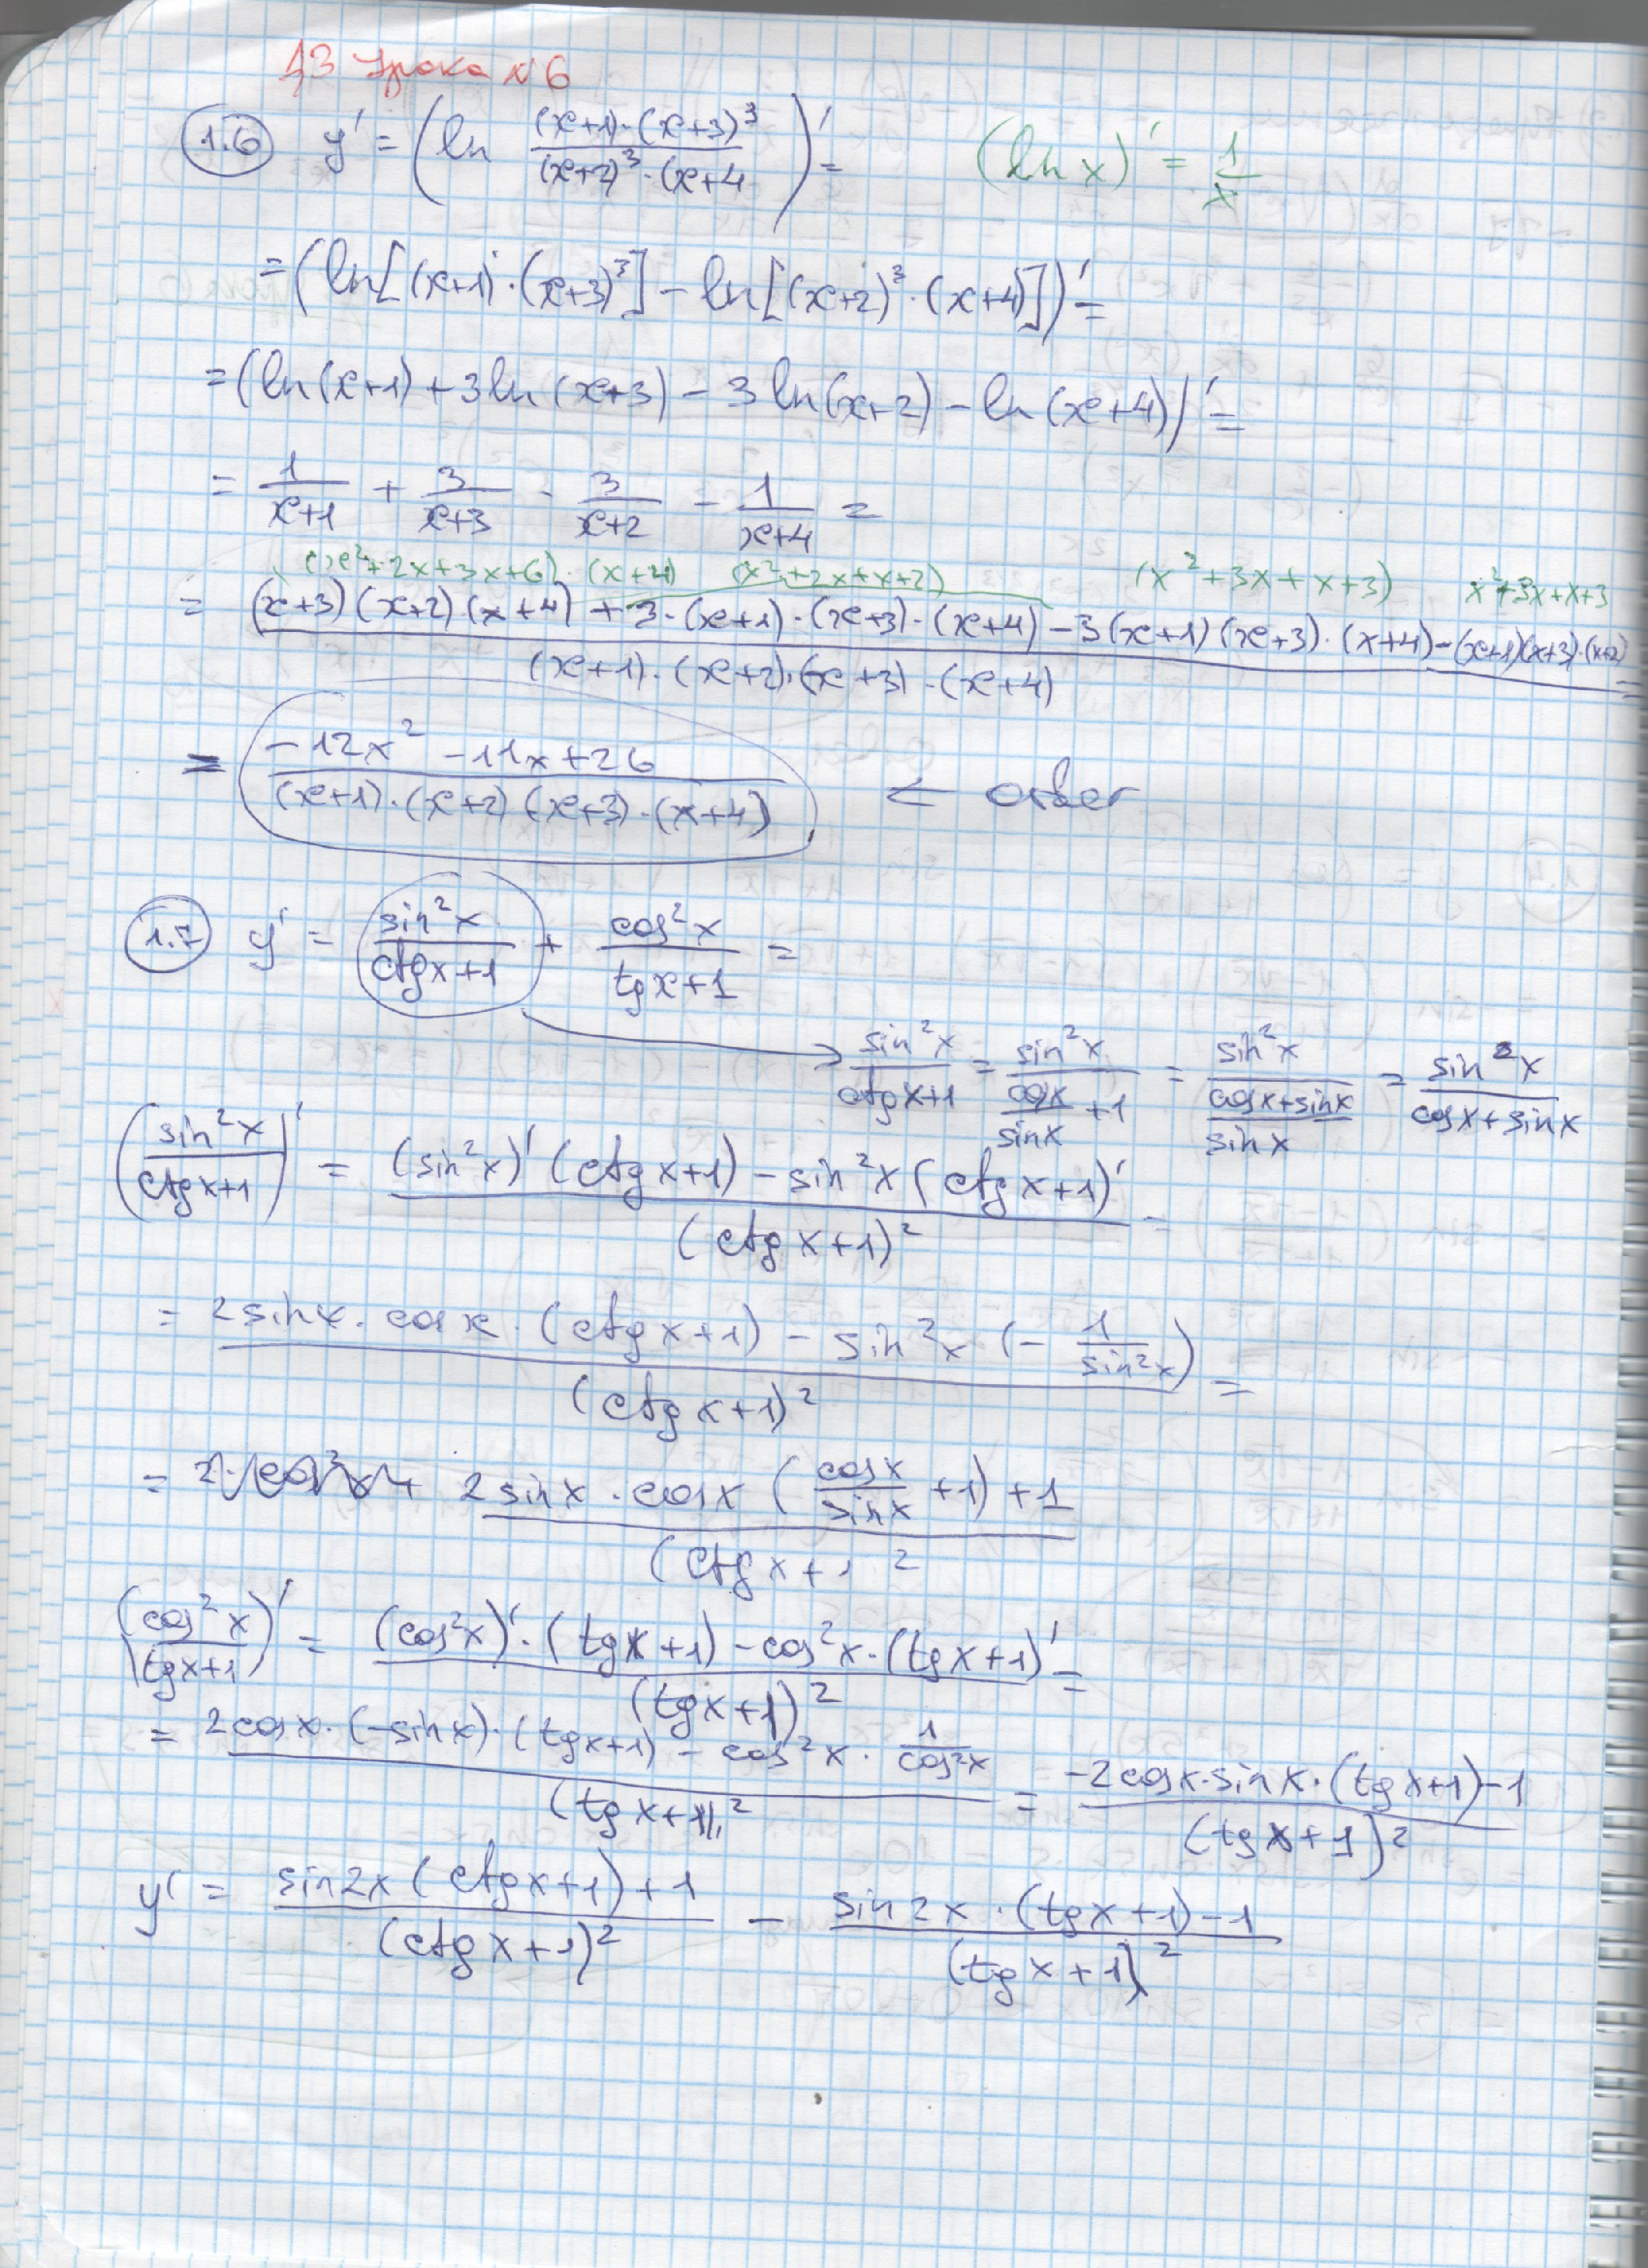 ДЗ Урока №6
1.6 y' = (ln ((x+1)·(x+3)³)/((x+2)³·(x+4))' = (ln x)' = 1/x
= (ln[(x+1)·(x+3)³] - ln[(x+2)³·(x+4)])' =
= (ln(x+1) + 3ln(x+3) - 3ln(x+2) - ln(x+4))' =
= 1/(x+1) + 3/(x+3) - 3/(x+2) - 1/(x+4) =
(x²+2x+3x+6)·(x+4) (x²+2x+x+2) (x²+3x+x+3) x²+3x+x+3
= ((x+3)(x+2)(x+4) + 3·(x+1)·(x+3)·(x+4) - 3(x+1)(x+3)·(x+4) - (x+1)(x+3)·(x+2))/((x+1)·(x+2)·(x+3)·(x+4)) =
= (-12x² - 11x + 26)/((x+1)·(x+2)(x+3)·(x+4)) ← ответ
1.7 y' = sin²x/(ctgx+1) + cos²x/(tgx+1) =
→ sin²x/(ctgx+1) = sin²x/(cosx/sinx + 1) = sin²x/((cosx+sinx)/sinx) = sin³x/(cosx+sinx)
(sin²x/(ctgx+1))' = ((sin²x)'(ctgx+1) - sin²x(ctgx+1)')/(ctgx+1)² =
= (2sinx·cosx·(ctgx+1) - sin²x(-1/sin²x))/(ctgx+1)² =
= (2sinx·cosx(cosx/sinx + 1) + 1)/(ctgx+1 ²
(cos²x/(tgx+1))' = ((cos²x)'·(tgx+1) - cos²x·(tgx+1)')/(tgx+1)² =
= (2cosx·(-sinx)·(tgx+1) - cos²x·1/cos²x)/(tgx+1)² = (-2cosx·sinx·(tgx+1) - 1)/(tgx+1)²
y' = (sin2x(ctgx+1) + 1)/(ctgx+1)² - (sin2x·(tgx+1) - 1)/(tgx+1)²